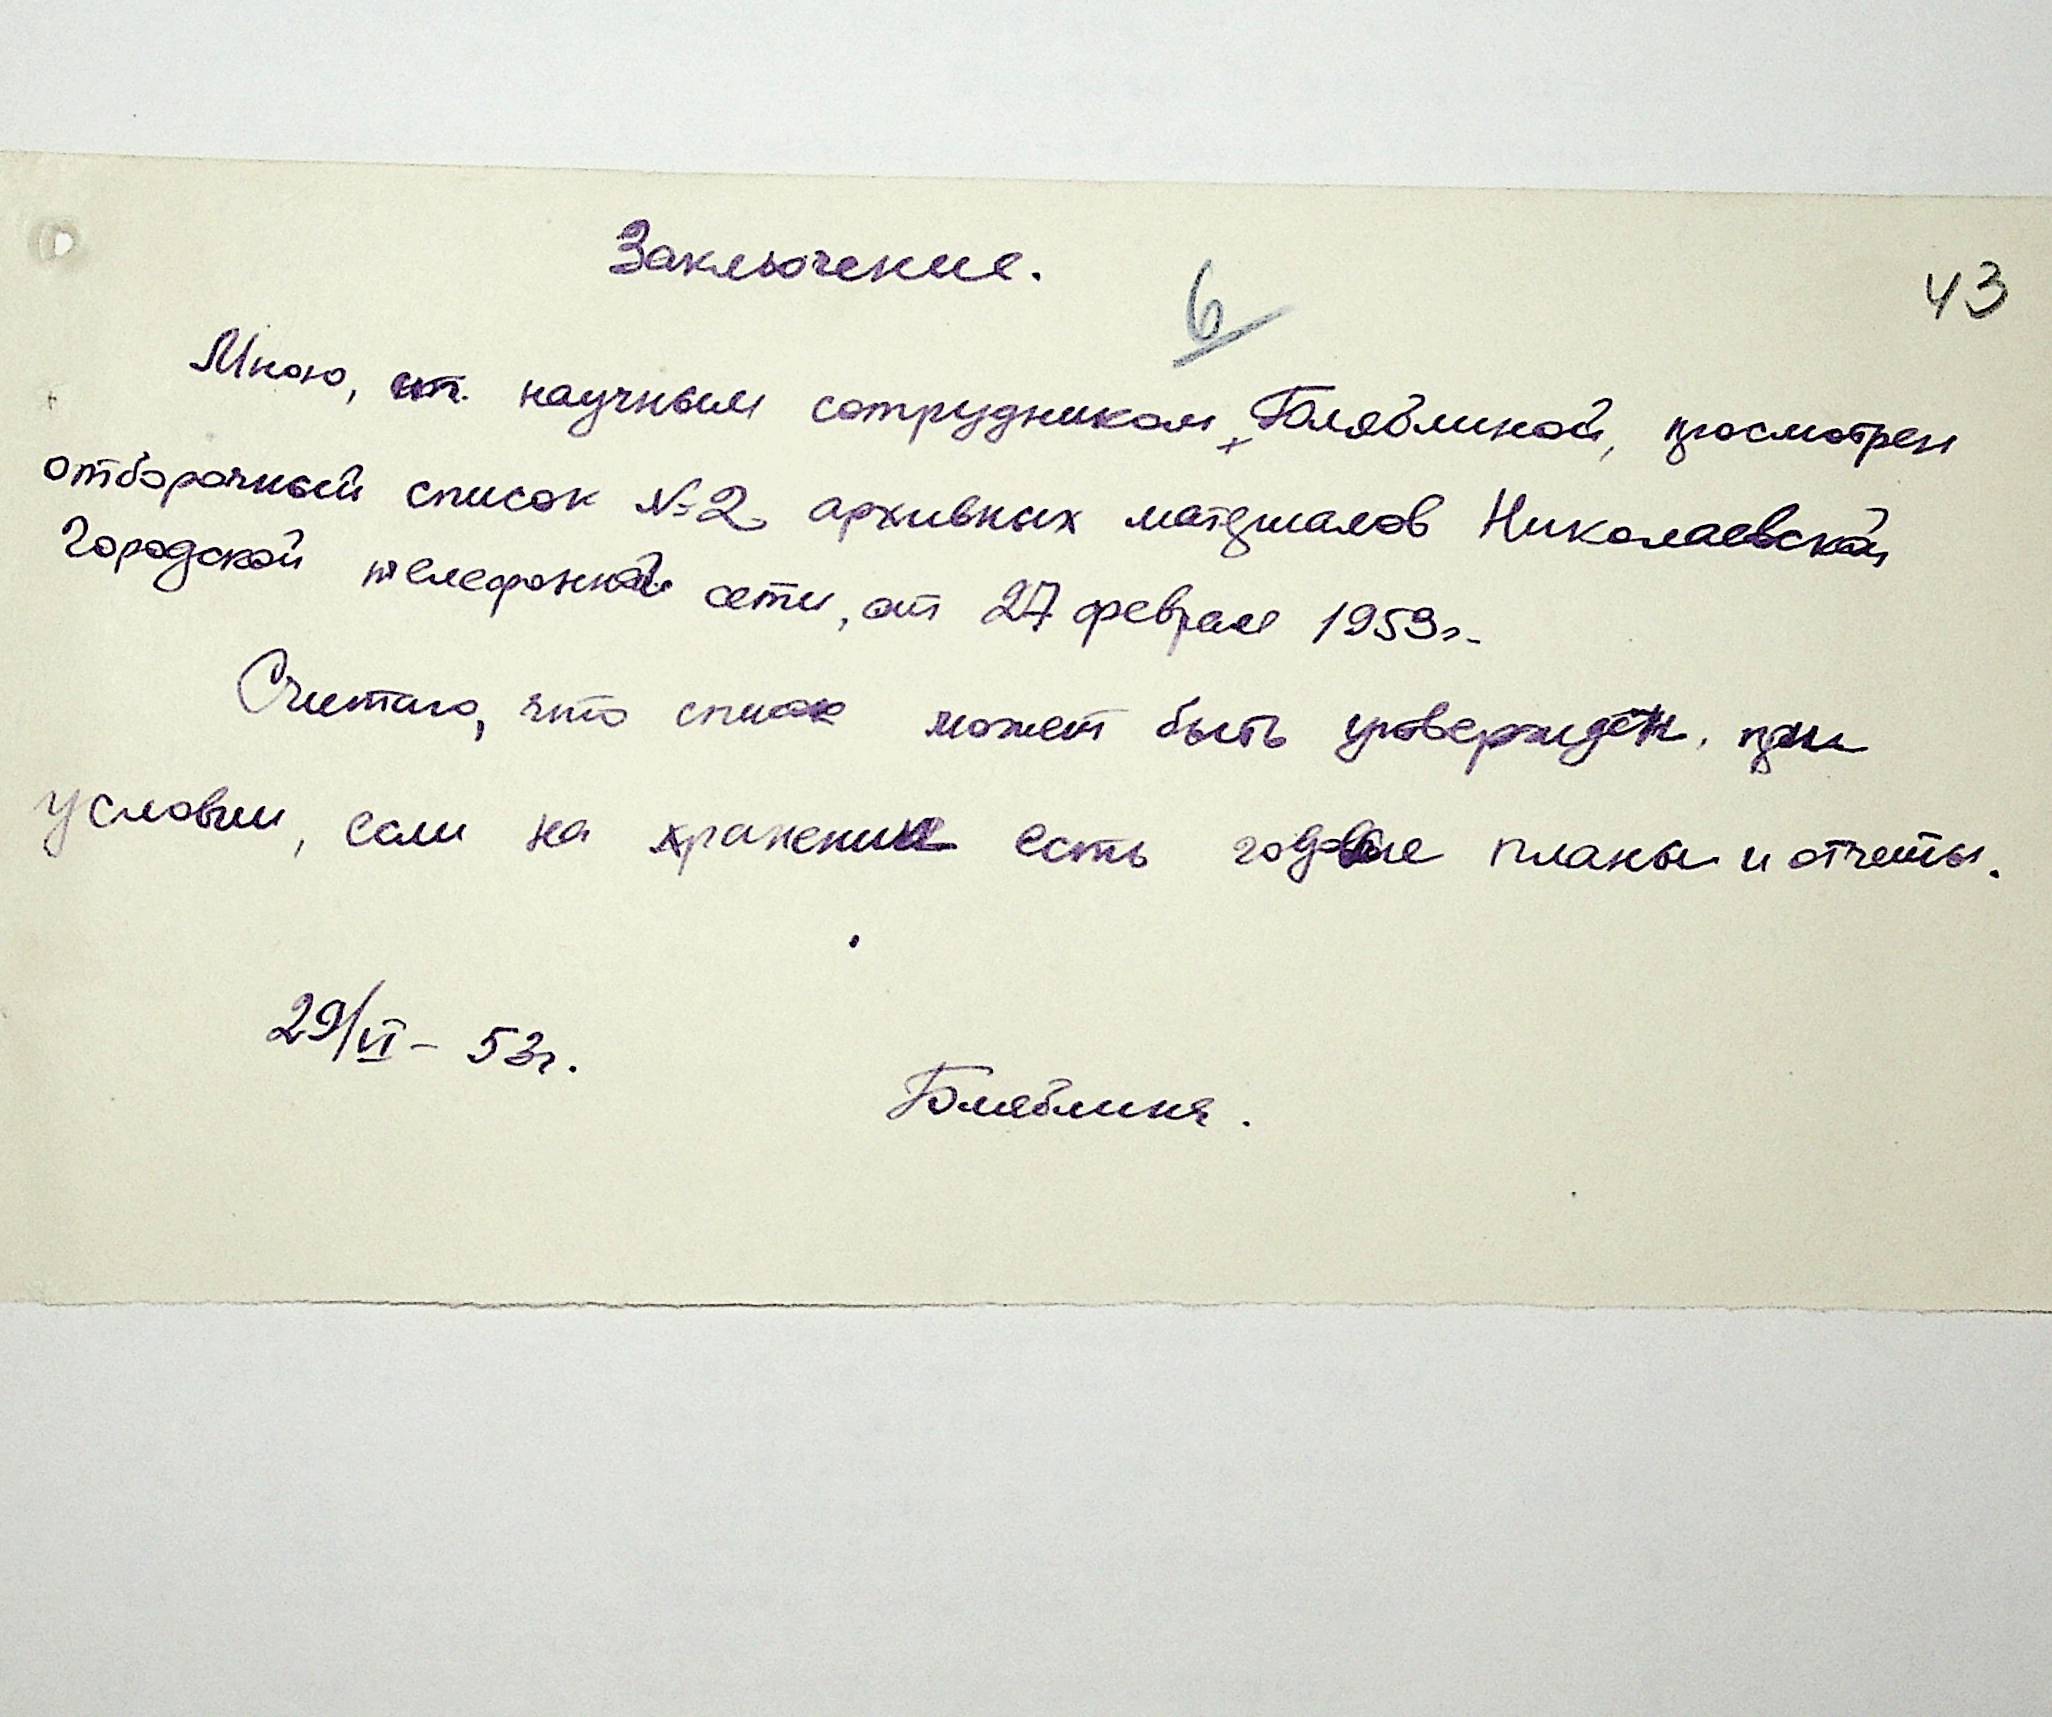 Заключение.
6
43
Мною, ст. научным сотрудником, Голяблиной, просмотрен
отборочный список №2 архивных материалов Николаевской
Городской телефонной сети, от 27 февраля 1953г.
Считаю, что список может быть утвержден, при
условии, если на хранении есть годовые планы и отчеты.
29/VI - 53г.